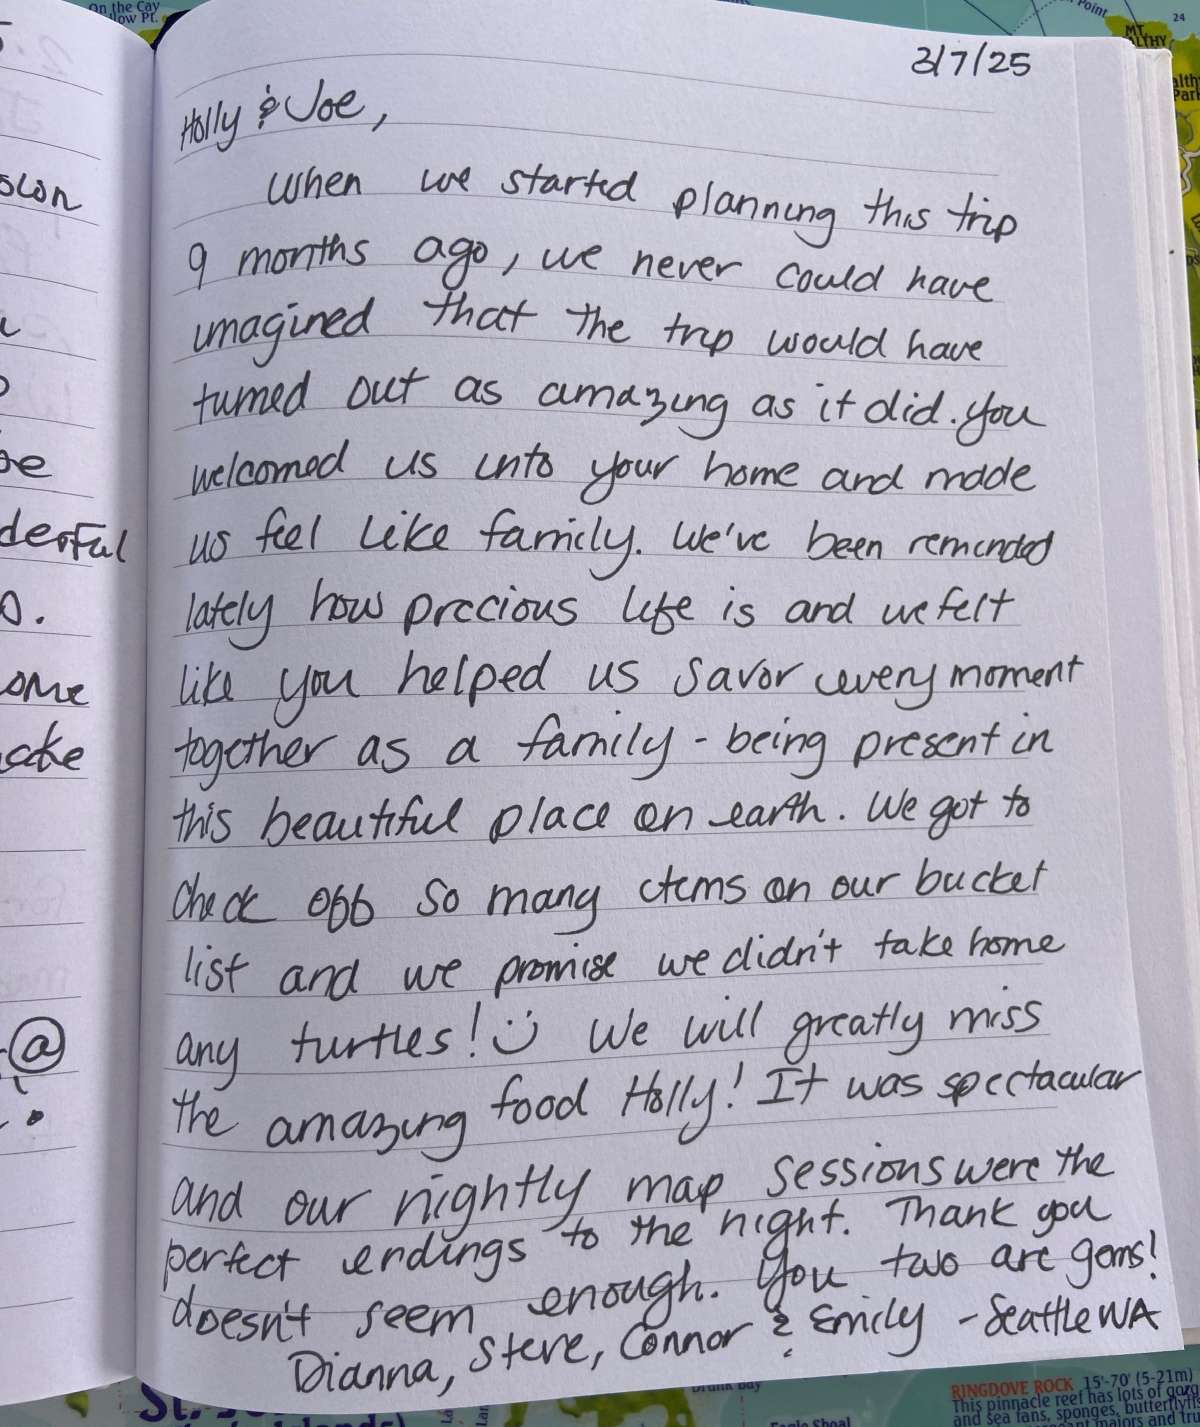 On the Cay
low Pt.
Point
24
MT
ALTHY
alth
Park
3/7/25
Holly & Joe,
When we started planning this trip
9 months ago, we never could have
imagined that the trip would have
turned out as amazing as it did. You
welcomed us into your home and made
us feel like family. We've been reminded
lately how precious life is and we felt
like you helped us savor every moment
together as a family - being present in
this beautiful place on earth. We got to
check off so many items on our bucket
list and we promise we didn't take home
any turtles! :) We will greatly miss
the amazing food Holly! It was spectacular
and our nightly map sessions were the
perfect endings to the night. Thank you
doesn't seem enough. You two are gems!
Dianna, Steve, Connor & Emily - Seattle WA
olon
be
derful
ome
ake
@
St.
RINGDOVE ROCK 15'-70' (5-21m)
This pinnacle reef has lots of gorg
and sea fans, sponges, butterflyfi
Eagle Shoal